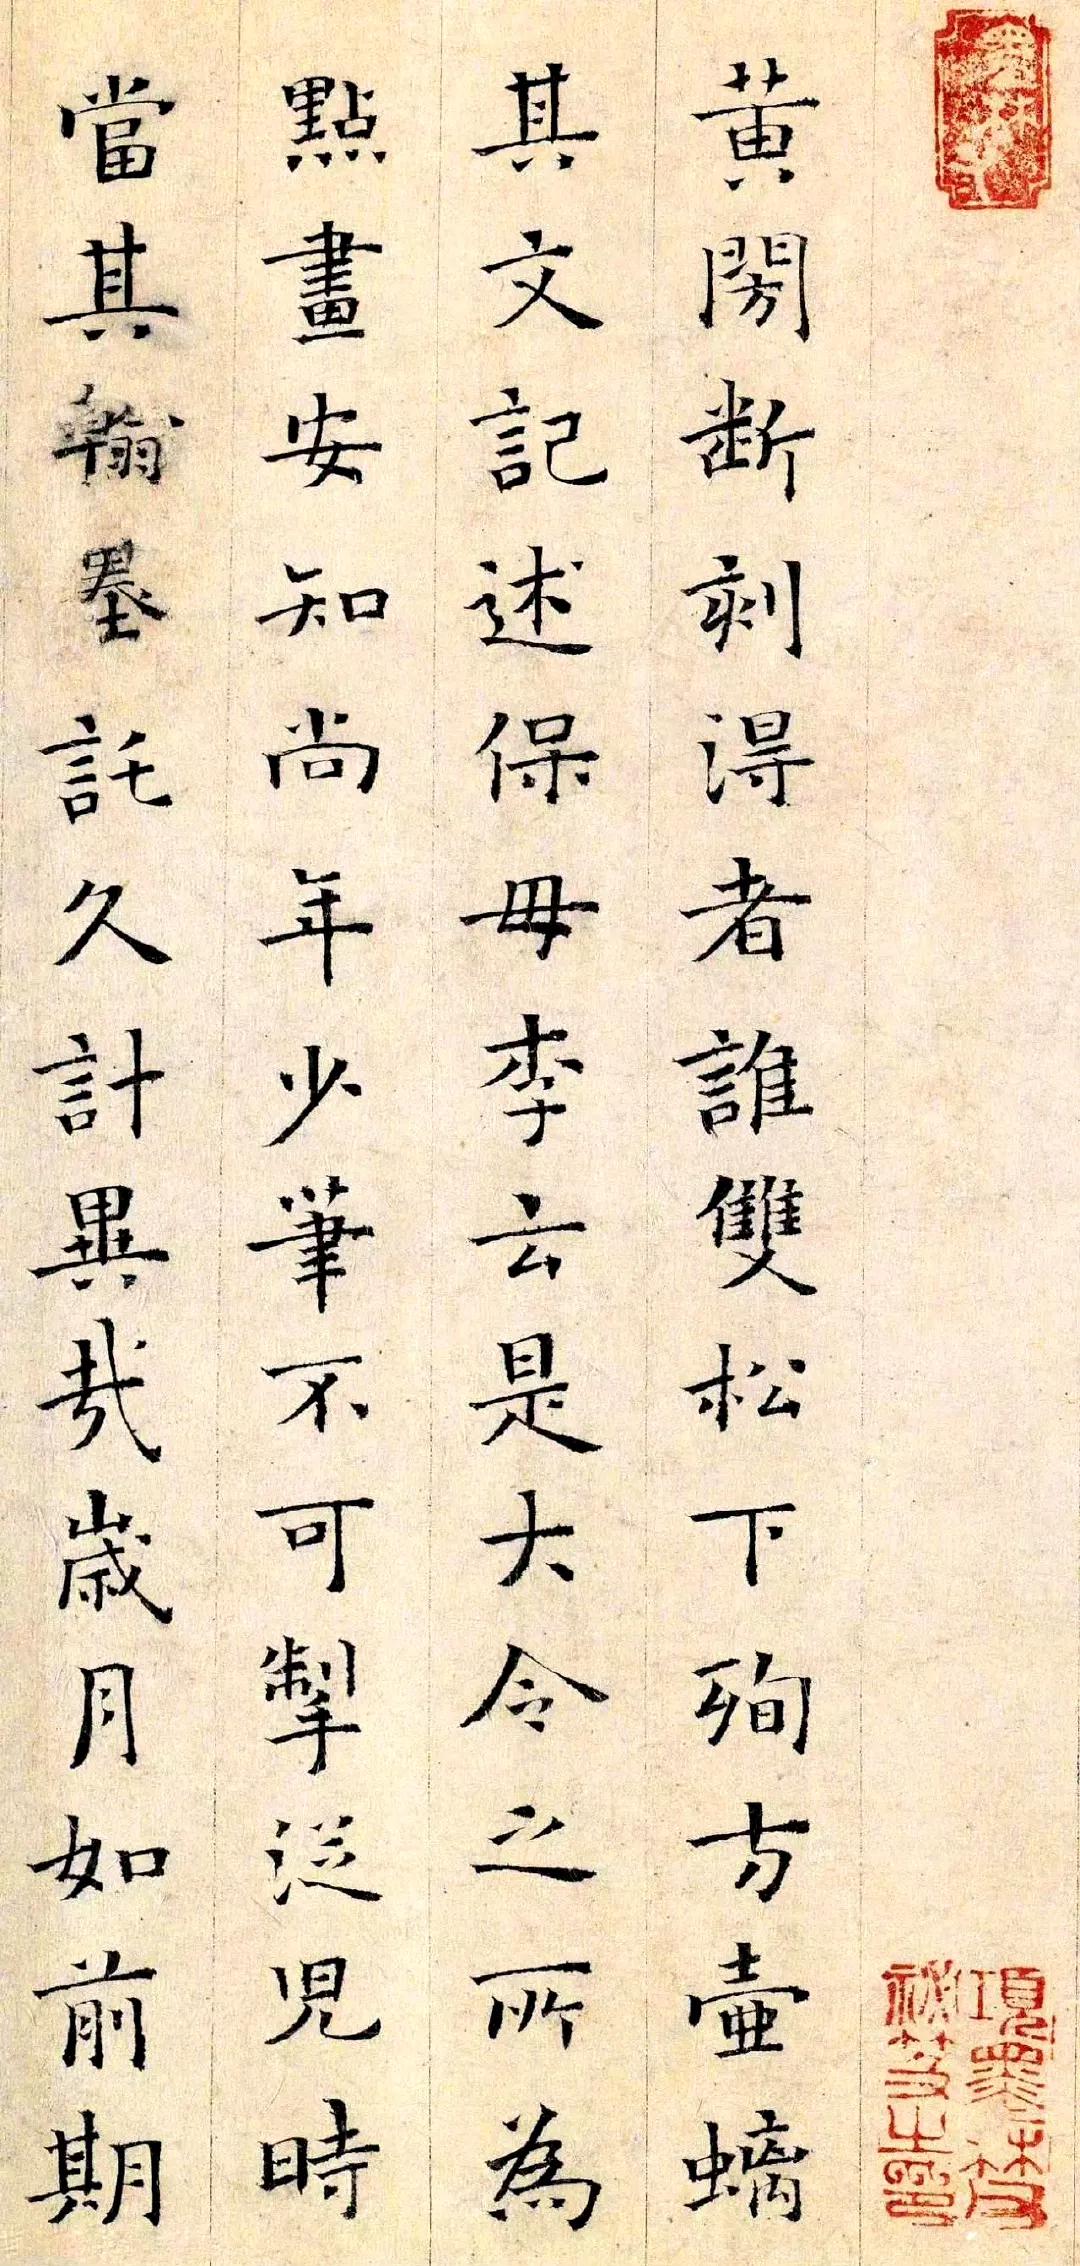 黃閍斷刻得者誰雙松下殉方壺螭
其文記述保母李云是大令之所為
點畫安知尚年少筆不可掣從兒時
當其翰墨託久計異哉歲月如前期
項墨林父
祕笈之印